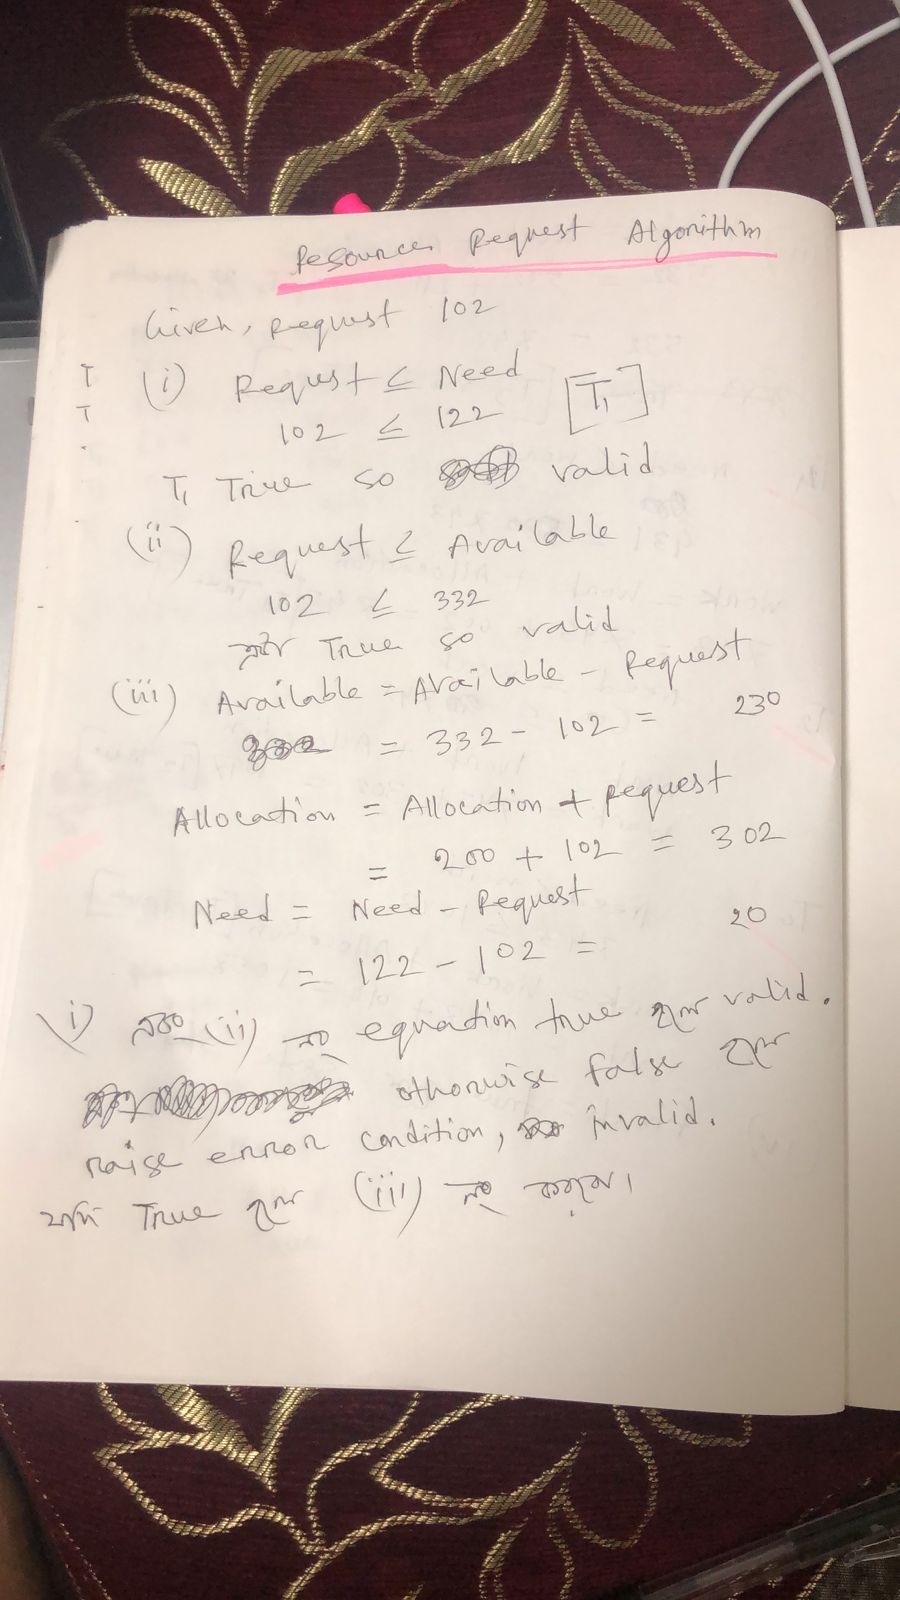 Resources Request Algorithm
Given, Request 102
(i) Requst ≤ Need
102 ≤ 122 [T₁]
T₁ True so valid
(ii) Request ≤ Available
102 ≤ 332
এটা True so valid
(iii) Available = Available - Request
= 332 - 102 = 230
Allocation = Allocation + Request
= 200 + 102 = 302
Need = Need - Request
= 122 - 102 = 20
i) এবং (ii) নং equation true হলে valid.
otherwise false হলে
raise error condition, invalid.
যদি True হলে (iii) নং করবো।
T
T